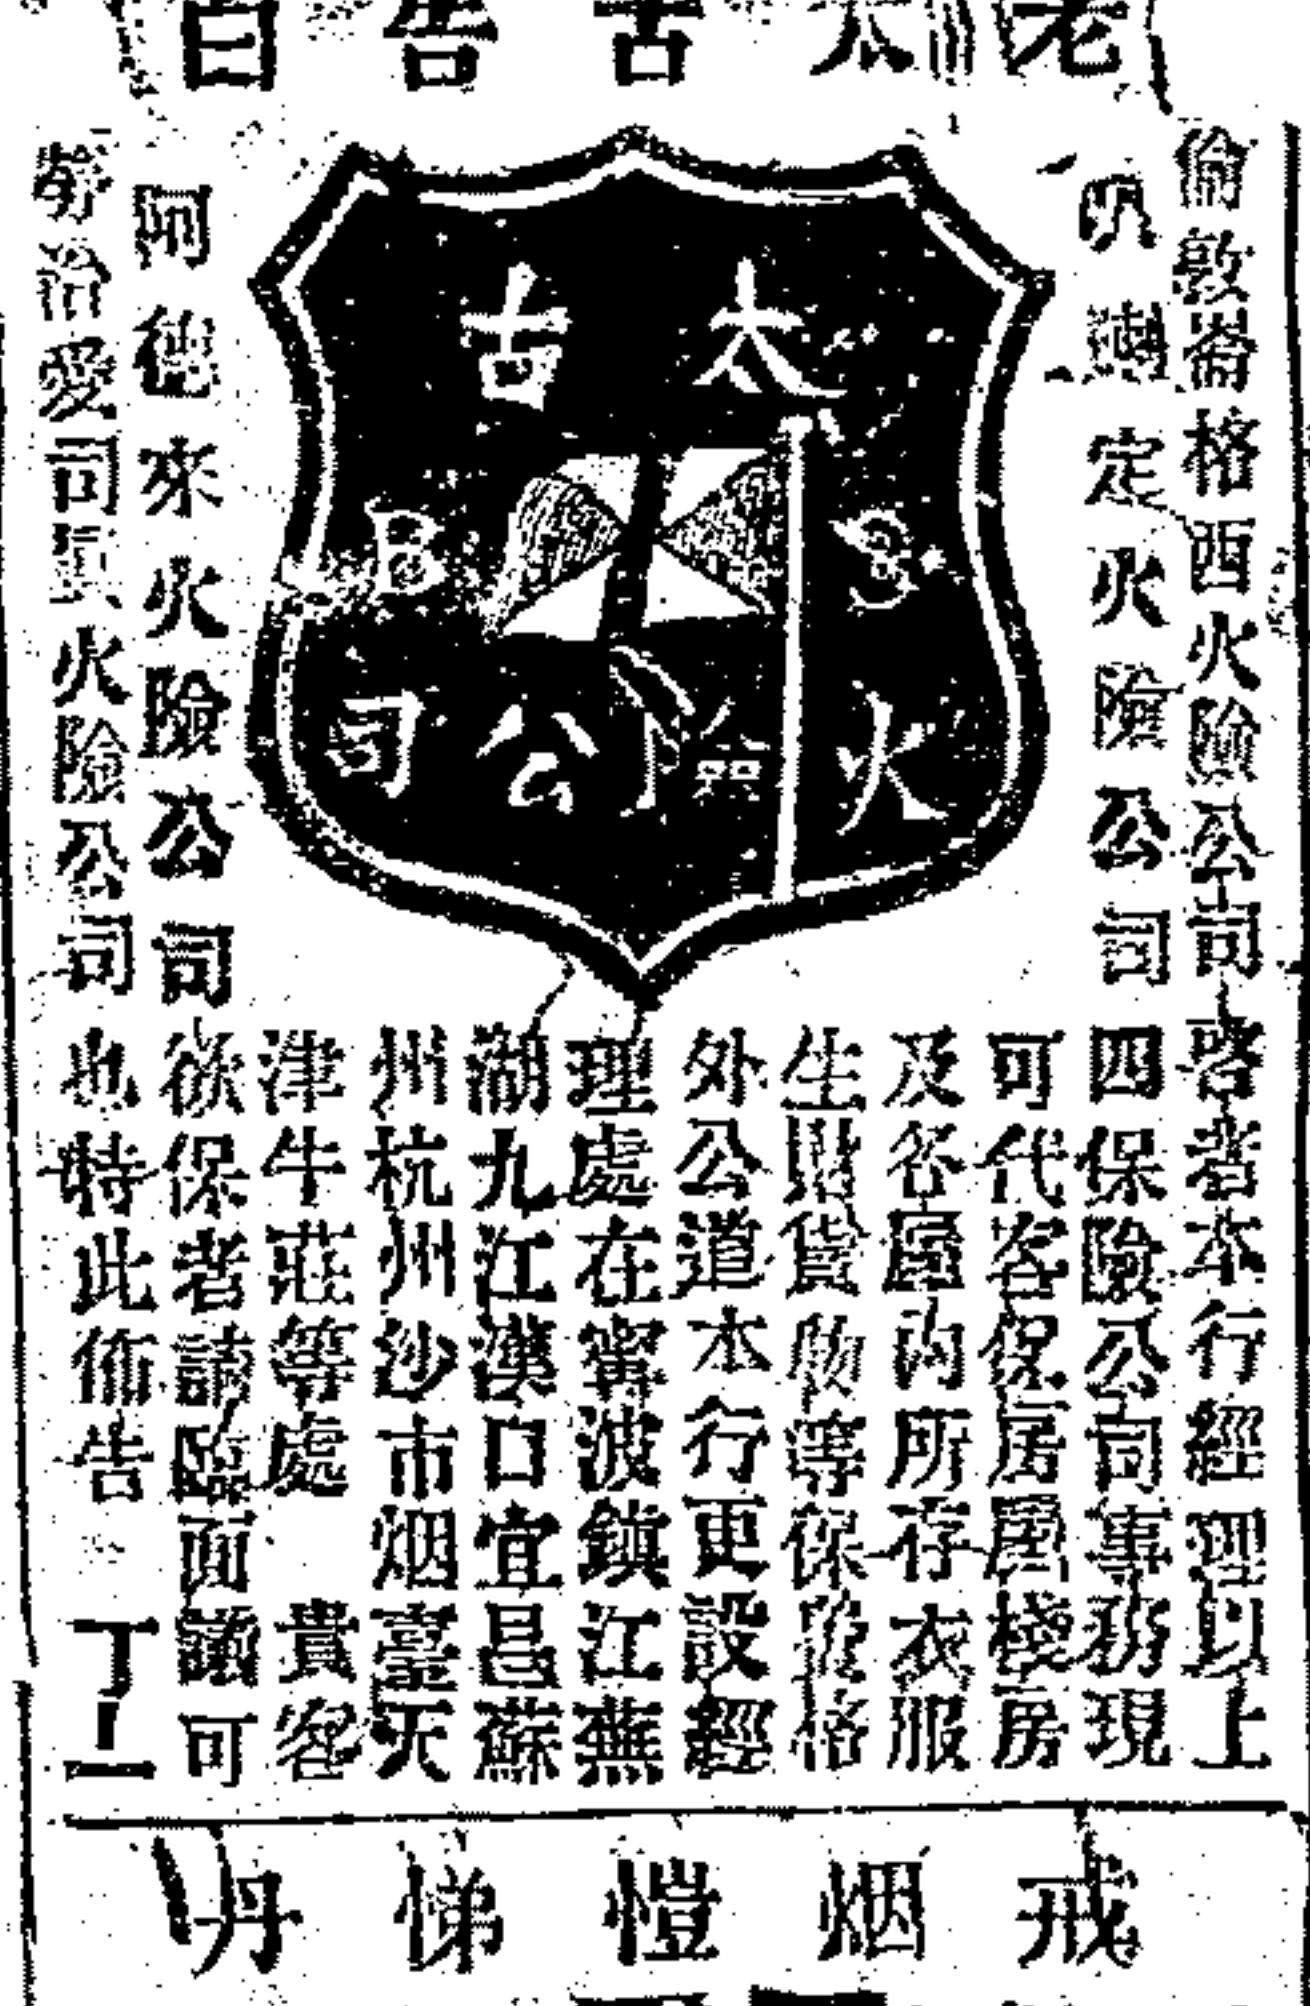 老太古告白
倫敦崙格西火險公司
定火險公司
太古
B S
火險公司
阿德來火險公司
勞治愛司火險公司
啓者本行經理以上
四保險公司事務現
可代客保房屋棧房
及各屋內所存衣服
生財貨物等保險格
外公道本行更設經
理處在甯波鎮江蕪
湖九江漢口宜昌蘇
州杭州沙市烟臺天
津牛莊等處 貴客
欲保者請臨面議可
也特此佈告 丁二
戒烟愷悌丹